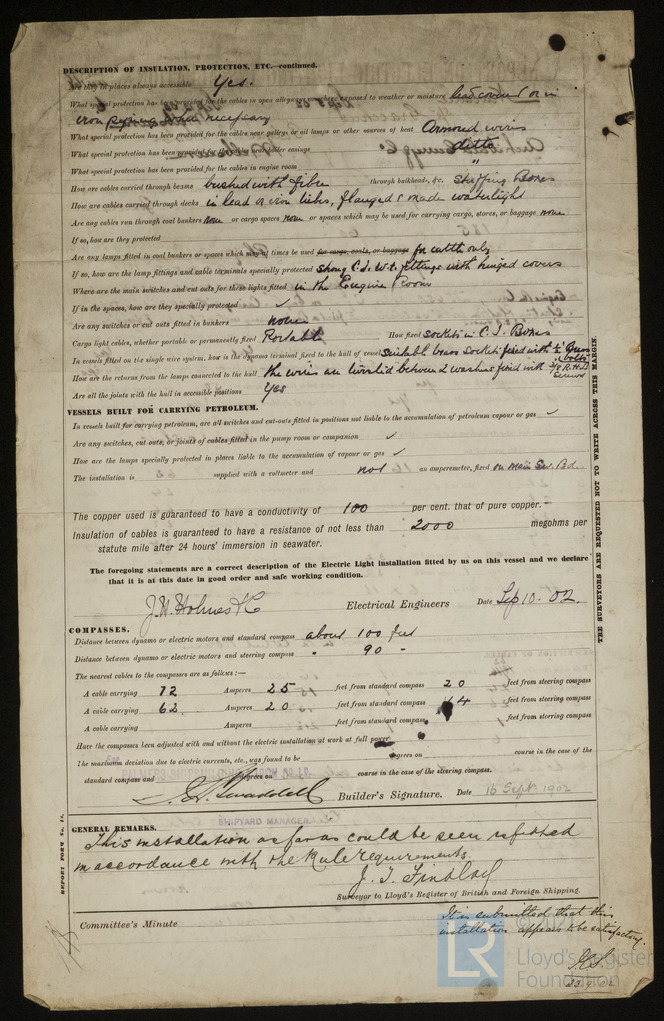 DESCRIPTION OF INSULATION, PROTECTION, ETC.—continued.
places always accessible Yes.
What special protection has been provided for the cables in open alleyways or where exposed to weather or moisture lead covered or in
iron piping where necessary
What special protection has been provided for the cables near galleys or oil lamps or other sources of heat Armored wires
What special protection has been provided for the cables near boiler casings ditto
What special protection has been provided for the cables in engine room "
How are cables carried through beams bushed with fibre through bulkheads, &c. stuffing Boxes
How are cables carried through decks in lead or iron tubes, flanged & made watertight
Are any cables run through coal bunkers none or cargo spaces none or spaces which may be used for carrying cargo, stores, or baggage none
If so, how are they protected
Are any lamps fitted in coal bunkers or spaces which may at times be used for cargo, coals, or baggage for cattle only
If so, how are the lamp fittings and cable terminals specially protected strong C.I. W.t. fittings with hinged covers
Where are the main switches and cut outs for these lights fitted in the Engine Room
If in the spaces, how are they specially protected ✓
Are any switches or cut outs fitted in bunkers none
Cargo light cables, whether portable or permanently fixed Portable How fixed sockets in C.I. Boxes
In vessels fitted on the single wire system, how is the dynamo terminal fixed to the hull of vessel suitable brass sockets fixed with ½" Brass bolts
How are the returns from the lamps connected to the hull the wires are twisted between 2 washers fixed with 3/8 R.H. Screws
Are all the joints with the hull in accessible positions Yes
VESSELS BUILT FOR CARRYING PETROLEUM.
In vessels built for carrying petroleum, are all switches and cut-outs fitted in positions not liable to the accumulation of petroleum vapour or gas ✓
Are any switches, cut outs, or joints of cables fitted in the pump room or companion ✓
How are the lamps specially protected in places liable to the accumulation of vapour or gas ✓
The installation is supplied with a voltmeter and not an amperemeter, fixed on Main Sw. Bd.
The copper used is guaranteed to have a conductivity of 100 per cent. that of pure copper.
Insulation of cables is guaranteed to have a resistance of not less than 2000 megohms per
statute mile after 24 hours' immersion in seawater.
The foregoing statements are a correct description of the Electric Light installation fitted by us on this vessel and we declare
that it is at this date in good order and safe working condition.
J.H. Holmes & Co Electrical Engineers Date Sep 10. 02.
COMPASSES.
Distance between dynamo or electric motors and standard compass about 100 feet
Distance between dynamo or electric motors and steering compass " 90 "
The nearest cables to the compasses are as follows:—
A cable carrying 72 Amperes 25 feet from standard compass 20 feet from steering compass
A cable carrying 62 Amperes 20 feet from standard compass 14 feet from steering compass
A cable carrying Amperes feet from standard compass feet from steering compass
Have the compasses been adjusted with and without the electric installation at work at full power
The maximum deviation due to electric currents, etc., was found to be degrees on course in the case of the
standard compass and degrees on course in the case of the steering compass.
Builder's Signature. Date 16 Sept 1902
SHIPYARD MANAGER.
GENERAL REMARKS.
This installation as far as could be seen is fitted
in accordance with the Rule requirements.
J. T. Findlay
Surveyor to Lloyd's Register of British and Foreign Shipping.
Committee's Minute
It is submitted that this
installation appears to be satisfactory.
THE SURVEYORS ARE REQUESTED NOT TO WRITE ACROSS THIS MARGIN.
© 2021
LR
Lloyd's Register
Foundation